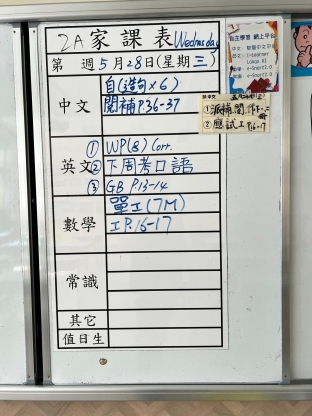 2A 家課表 Wednesday
第 週 5月28日(星期三)
中文
自(造句×6)
閱補 P.36-37
英文
① WP(8) Corr.
② 下周考口語
③ GB P.13-14
數學
單工(7M)
工P.16-17
常識
其它
值日生
自主學習 網上平台
②應試工 P.16-17